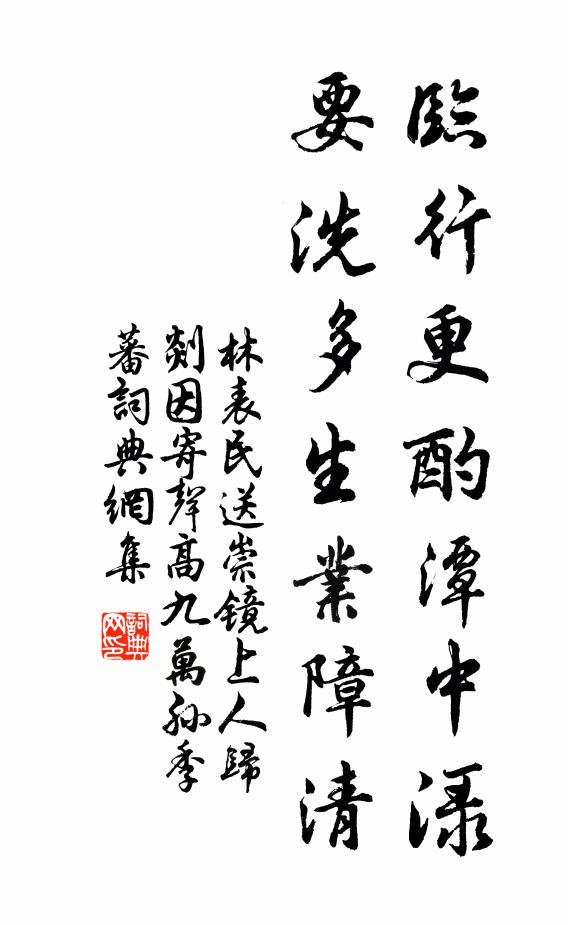 臨行更酌潭中渌
要洗多生業障清
林表民送崇鏡上人歸
剡因寄聲高九萬孫季
蕃詞典網集
詞典
网印